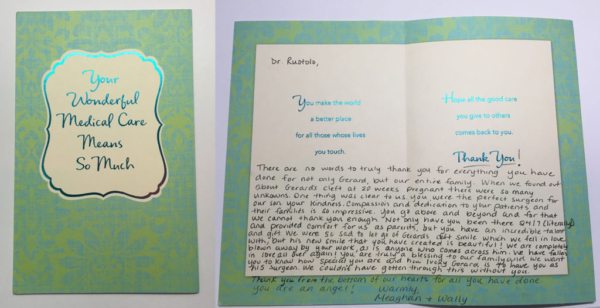 Your
Wonderful
Medical Care
Means
So Much
Dr. Ruotolo,
You make the world
a better place
for all those whose lives
you touch.
Hope all the good care
you give to others
comes back to you.
Thank You!
There are no words to truly thank you for everything you have
done for not only Gerard, but our entire family. When we found out
about Gerards cleft at 20 weeks pregnant there were so many
unknowns. One thing was clear to us you were the perfect surgeon for
our son. Your kindness, compassion and dedication to your patients and
their families is so impressive. You go above and beyond and for that
we cannot thank you enough. Not only have you been there 24/7 (literally)
and provided comfort for us as parents, but you have an incredible talent
and gift. We were so sad to let go of Gerards cleft smile which we fell in love
with, but his new smile that you have created is beautiful! We are completely
blown away by your work, as is anyone who comes across him. We have fallen
in love all over again! You are truly a blessing to our family and we want
you to know how special you are and how lucky Gerard is to have you as
his surgeon. We couldn't have gotten through this without you.
Thank you from the bottom of our hearts for all you have done
you are an angel! Warmly,
Meaghan + Wally